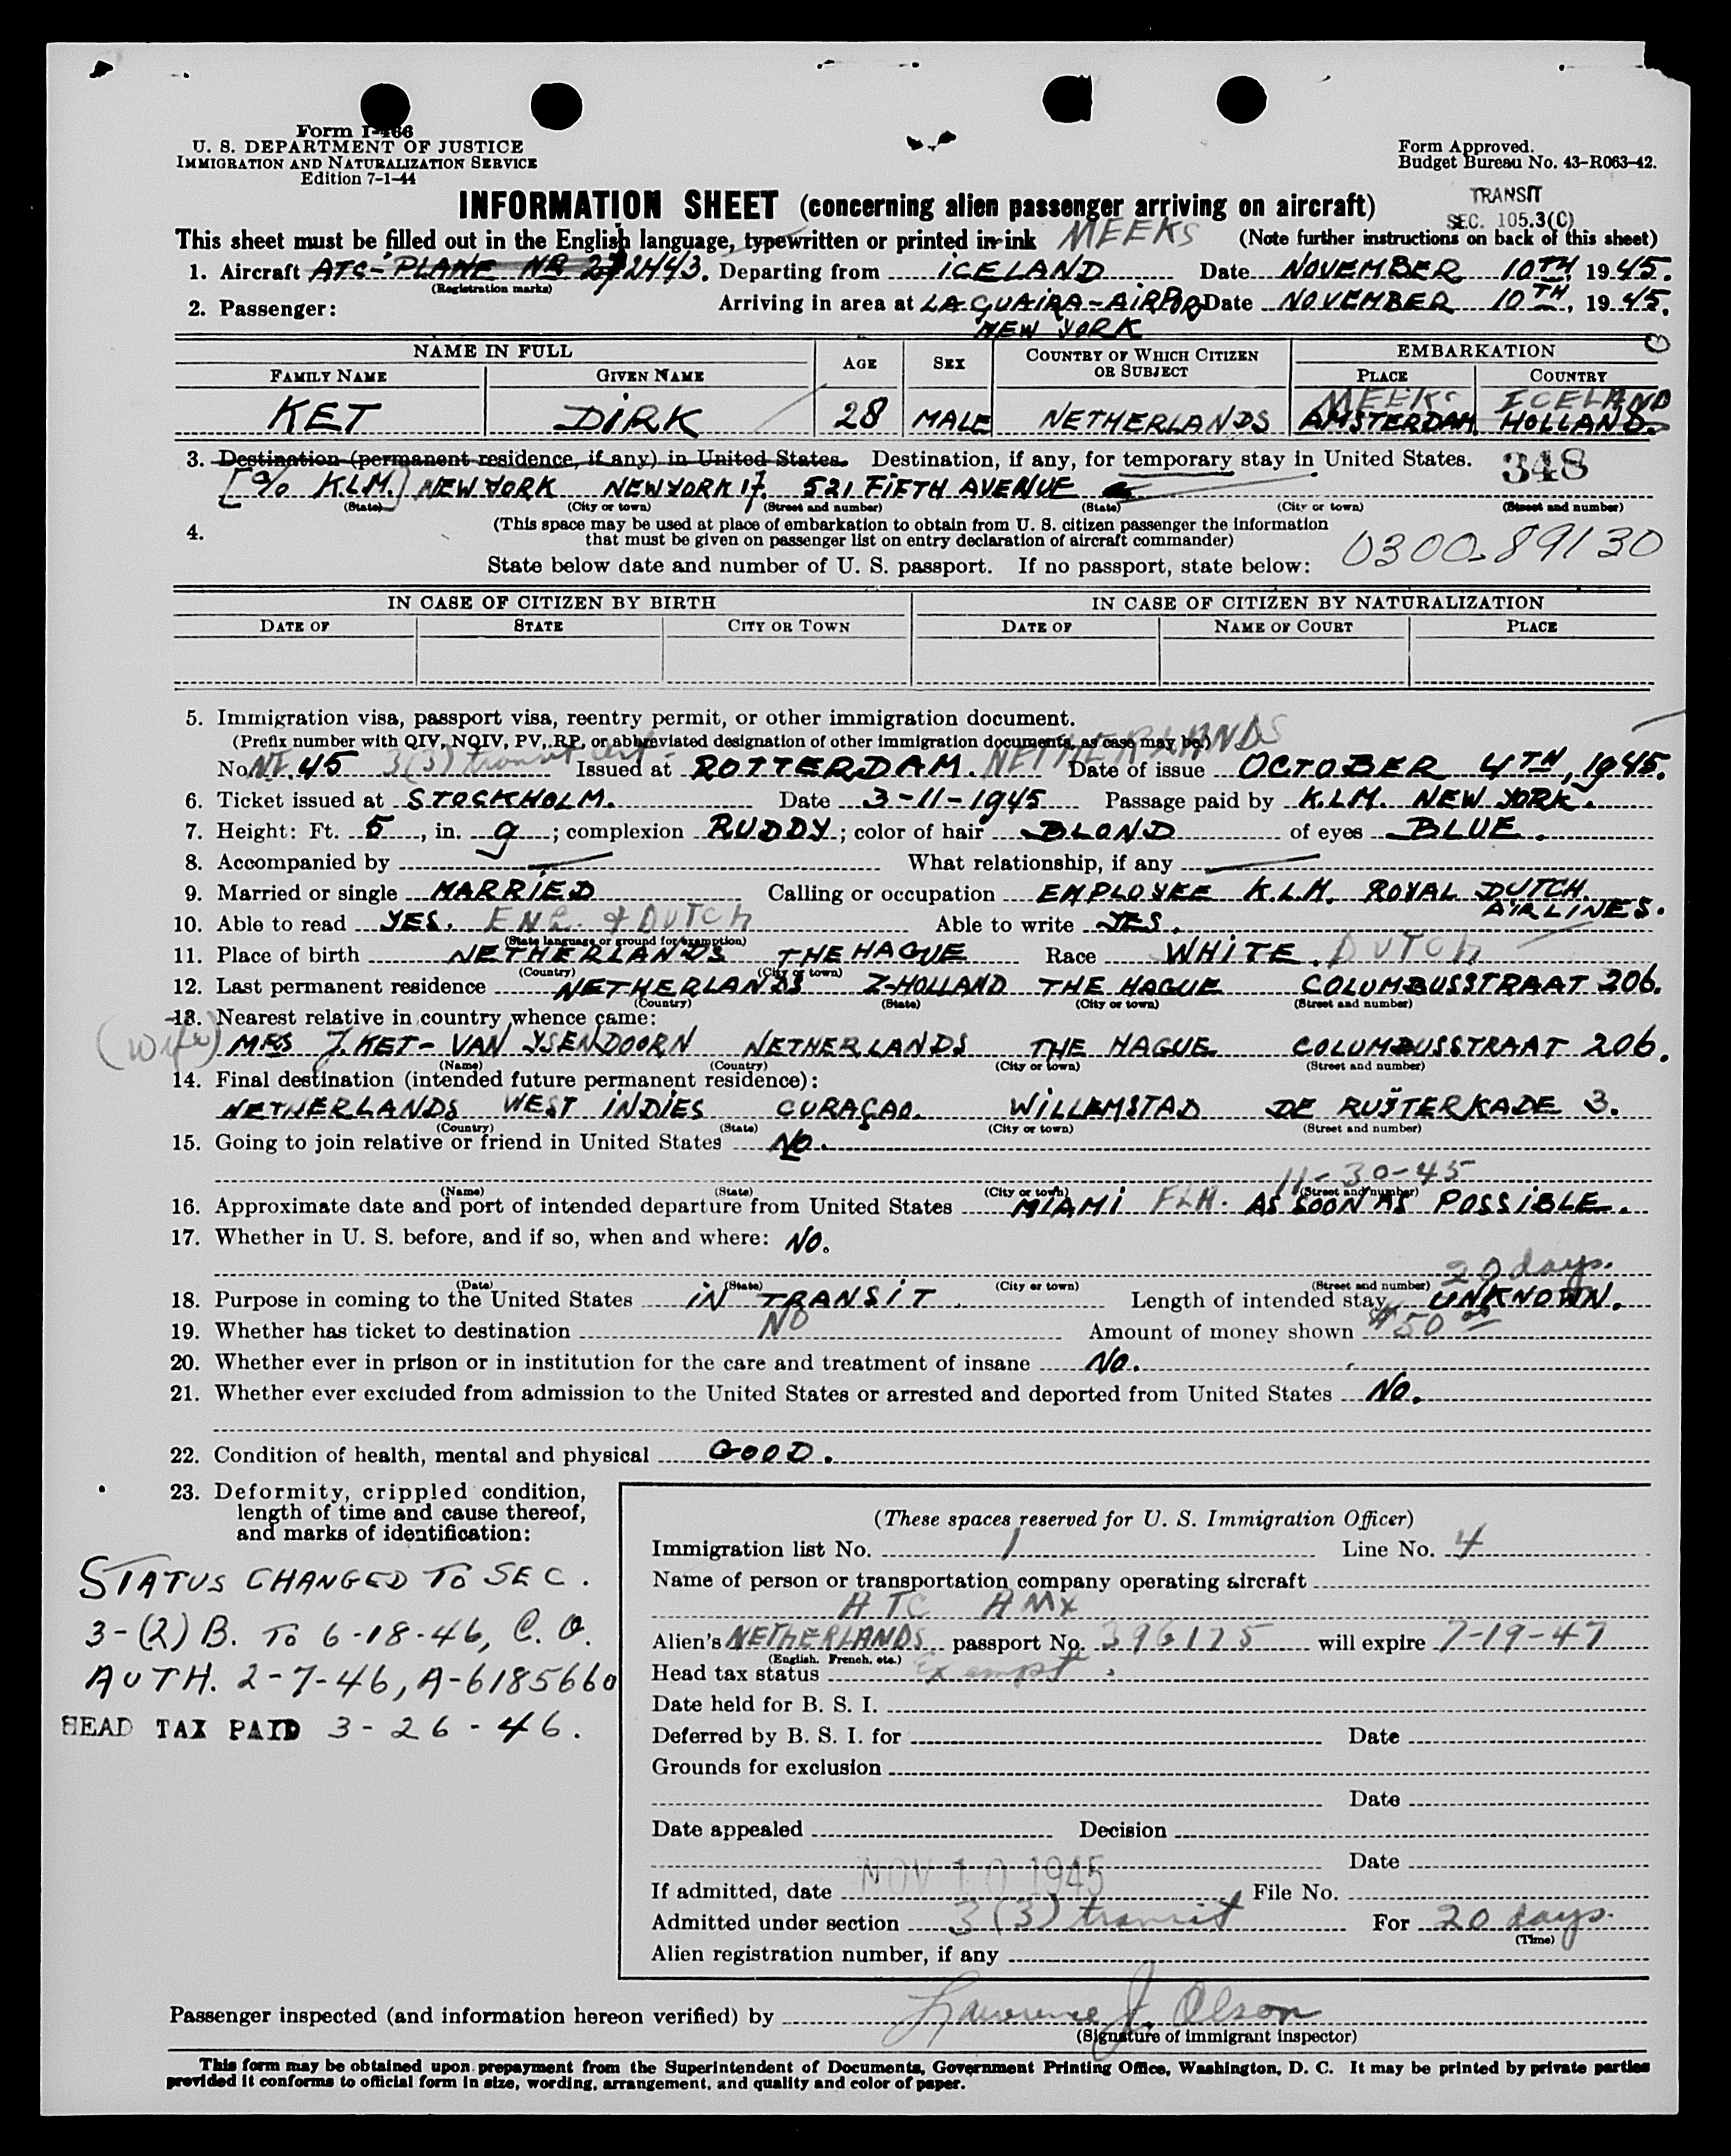 Form I-466
U. S. DEPARTMENT OF JUSTICE
IMMIGRATION AND NATURALIZATION SERVICE
Edition 7-1-44
Form Approved.
Budget Bureau No. 43-R063-42.
INFORMATION SHEET (concerning alien passenger arriving on aircraft)
TRANSIT
SEC. 105.3(C)
This sheet must be filled out in the English language, typewritten or printed in ink MEEKS (Note further instructions on back of this sheet)
1. Aircraft ATC-PLANE NR 272443. Departing from ICELAND Date NOVEMBER 10TH 1945.
(Registration marks)
2. Passenger: Arriving in area at LA GUAIRA-AIRPORT Date NOVEMBER 10TH, 1945.
NEW YORK
NAME IN FULL AGE SEX COUNTRY OF WHICH CITIZEN OR SUBJECT EMBARKATION
FAMILY NAME GIVEN NAME PLACE COUNTRY
MEEKS ICELAND
KET DIRK 28 MALE NETHERLANDS AMSTERDAM HOLLAND
3. Destination (permanent residence, if any) in United States. Destination, if any, for temporary stay in United States. 348
[c/o K.L.M.] NEW YORK NEW YORK 17. 521 FIFTH AVENUE
(State) (City or town) (Street and number) (State) (City or town) (Street and number)
4. (This space may be used at place of embarkation to obtain from U. S. citizen passenger the information
that must be given on passenger list on entry declaration of aircraft commander)
0300-89130
State below date and number of U. S. passport. If no passport, state below:
IN CASE OF CITIZEN BY BIRTH IN CASE OF CITIZEN BY NATURALIZATION
DATE OF STATE CITY OR TOWN DATE OF NAME OF COURT PLACE
5. Immigration visa, passport visa, reentry permit, or other immigration document.
(Prefix number with QIV, NQIV, PV, RP, or abbreviated designation of other immigration documents, as case may be.)
No. NE 45 3(3) transit cert. Issued at ROTTERDAM. NETHERLANDS Date of issue OCTOBER 4TH, 1945.
6. Ticket issued at STOCKHOLM. Date 3-11-1945 Passage paid by K.L.M. NEW YORK.
7. Height: Ft. 5, in. 9; complexion RUDDY; color of hair BLOND of eyes BLUE.
8. Accompanied by What relationship, if any
9. Married or single MARRIED Calling or occupation EMPLOYEE K.L.M. ROYAL DUTCH.
AIRLINES.
10. Able to read YES. ENG. & DUTCH Able to write YES.
(State language or ground for exemption)
11. Place of birth NETHERLANDS THE HAGUE Race WHITE. DUTCH
(Country) (City or town)
12. Last permanent residence NETHERLANDS Z-HOLLAND THE HAGUE COLUMBUSSTRAAT 206.
(Country) (State) (City or town) (Street and number)
13. Nearest relative in country whence came:
(Wife) MRS J. KET-VAN YSENDOORN NETHERLANDS THE HAGUE COLUMBUSSTRAAT 206.
(Name) (Country) (City or town) (Street and number)
14. Final destination (intended future permanent residence):
NETHERLANDS WEST INDIES CURAÇAO. WILLEMSTAD DE RUIJTERKADE 3.
(Country) (State) (City or town) (Street and number)
15. Going to join relative or friend in United States NO.
11-30-45
(Name) (State) (City or town) (Street and number)
16. Approximate date and port of intended departure from United States MIAMI FLA. AS SOON AS POSSIBLE.
17. Whether in U. S. before, and if so, when and where: NO.
20 days.
(Date) (State) (City or town) (Street and number)
18. Purpose in coming to the United States IN TRANSIT. Length of intended stay UNKNOWN.
19. Whether has ticket to destination NO Amount of money shown $50 00
20. Whether ever in prison or in institution for the care and treatment of insane NO.
21. Whether ever excluded from admission to the United States or arrested and deported from United States NO.
22. Condition of health, mental and physical GOOD.
23. Deformity, crippled condition,
length of time and cause thereof,
and marks of identification:
STATUS CHANGED TO SEC.
3-(2) B. TO 6-18-46, C. O.
AUTH. 2-7-46, A-6185660
HEAD TAX PAID 3-26-46.
(These spaces reserved for U. S. Immigration Officer)
Immigration list No. 1 Line No. 4
Name of person or transportation company operating aircraft
ATC AMX
Alien's NETHERLANDS passport No. 396175 will expire 7-19-47
(English, French, etc.)
Head tax status Exempt
Date held for B. S. I.
Deferred by B. S. I. for Date
Grounds for exclusion
Date
Date appealed Decision
Date
If admitted, date NOV 10 1945 File No.
Admitted under section 3(3) transit For 20 days.
(Time)
Alien registration number, if any
Passenger inspected (and information hereon verified) by Lawrence J. Olson
(Signature of immigrant inspector)
This form may be obtained upon prepayment from the Superintendent of Documents, Government Printing Office, Washington, D. C. It may be printed by private parties
provided it conforms to official form in size, wording, arrangement, and quality and color of paper.